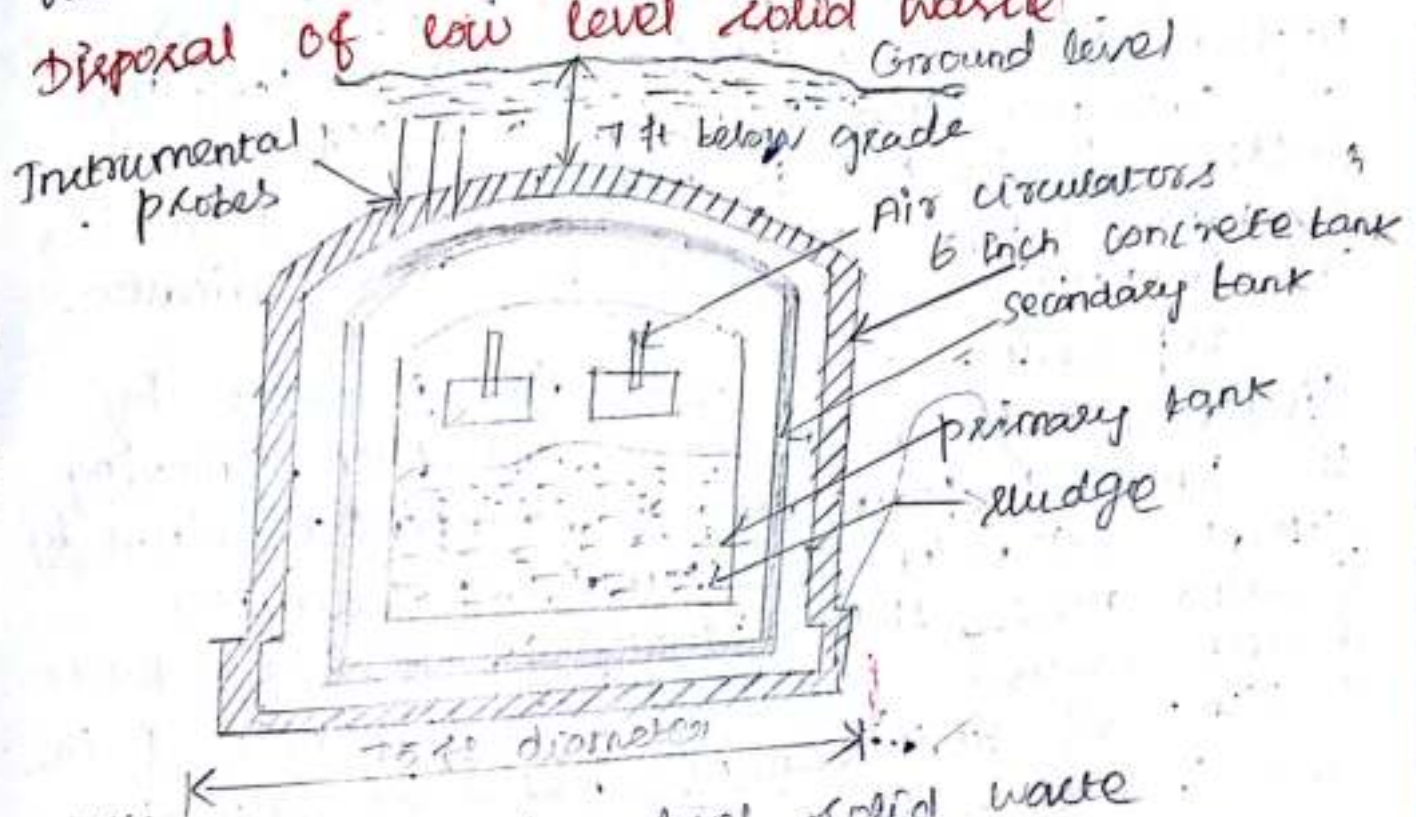 Disposal Of low level solid waste
Ground level
7 ft below grade
Instrumental
probes
Air circulators
6 inch concrete tank
secondary tank
primary tank
sludge
75 ft diameter
level solid waste